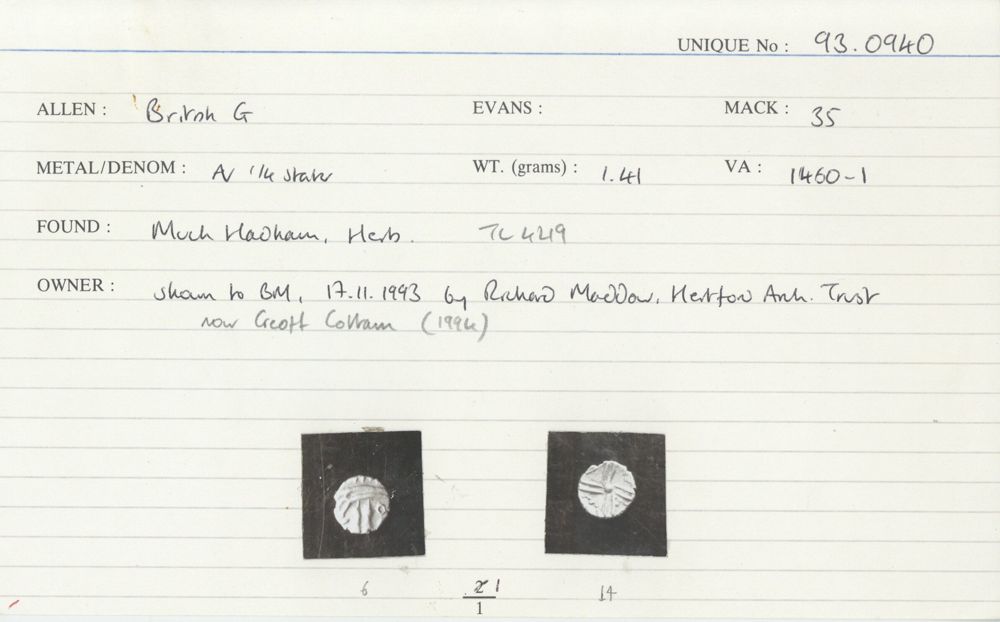 UNIQUE No : 93.0940
ALLEN : British G EVANS : MACK : 35
METAL/DENOM : AV 1/4 stater WT. (grams) : 1.41 VA : 1460-1
FOUND : Much Hadham, Herts. TL 4219
OWNER : shown to BM, 17.11.1993 by Richard Maddow, Hertford Arch. Trust
now Geoff Cottam (1994)
6 1 14
1